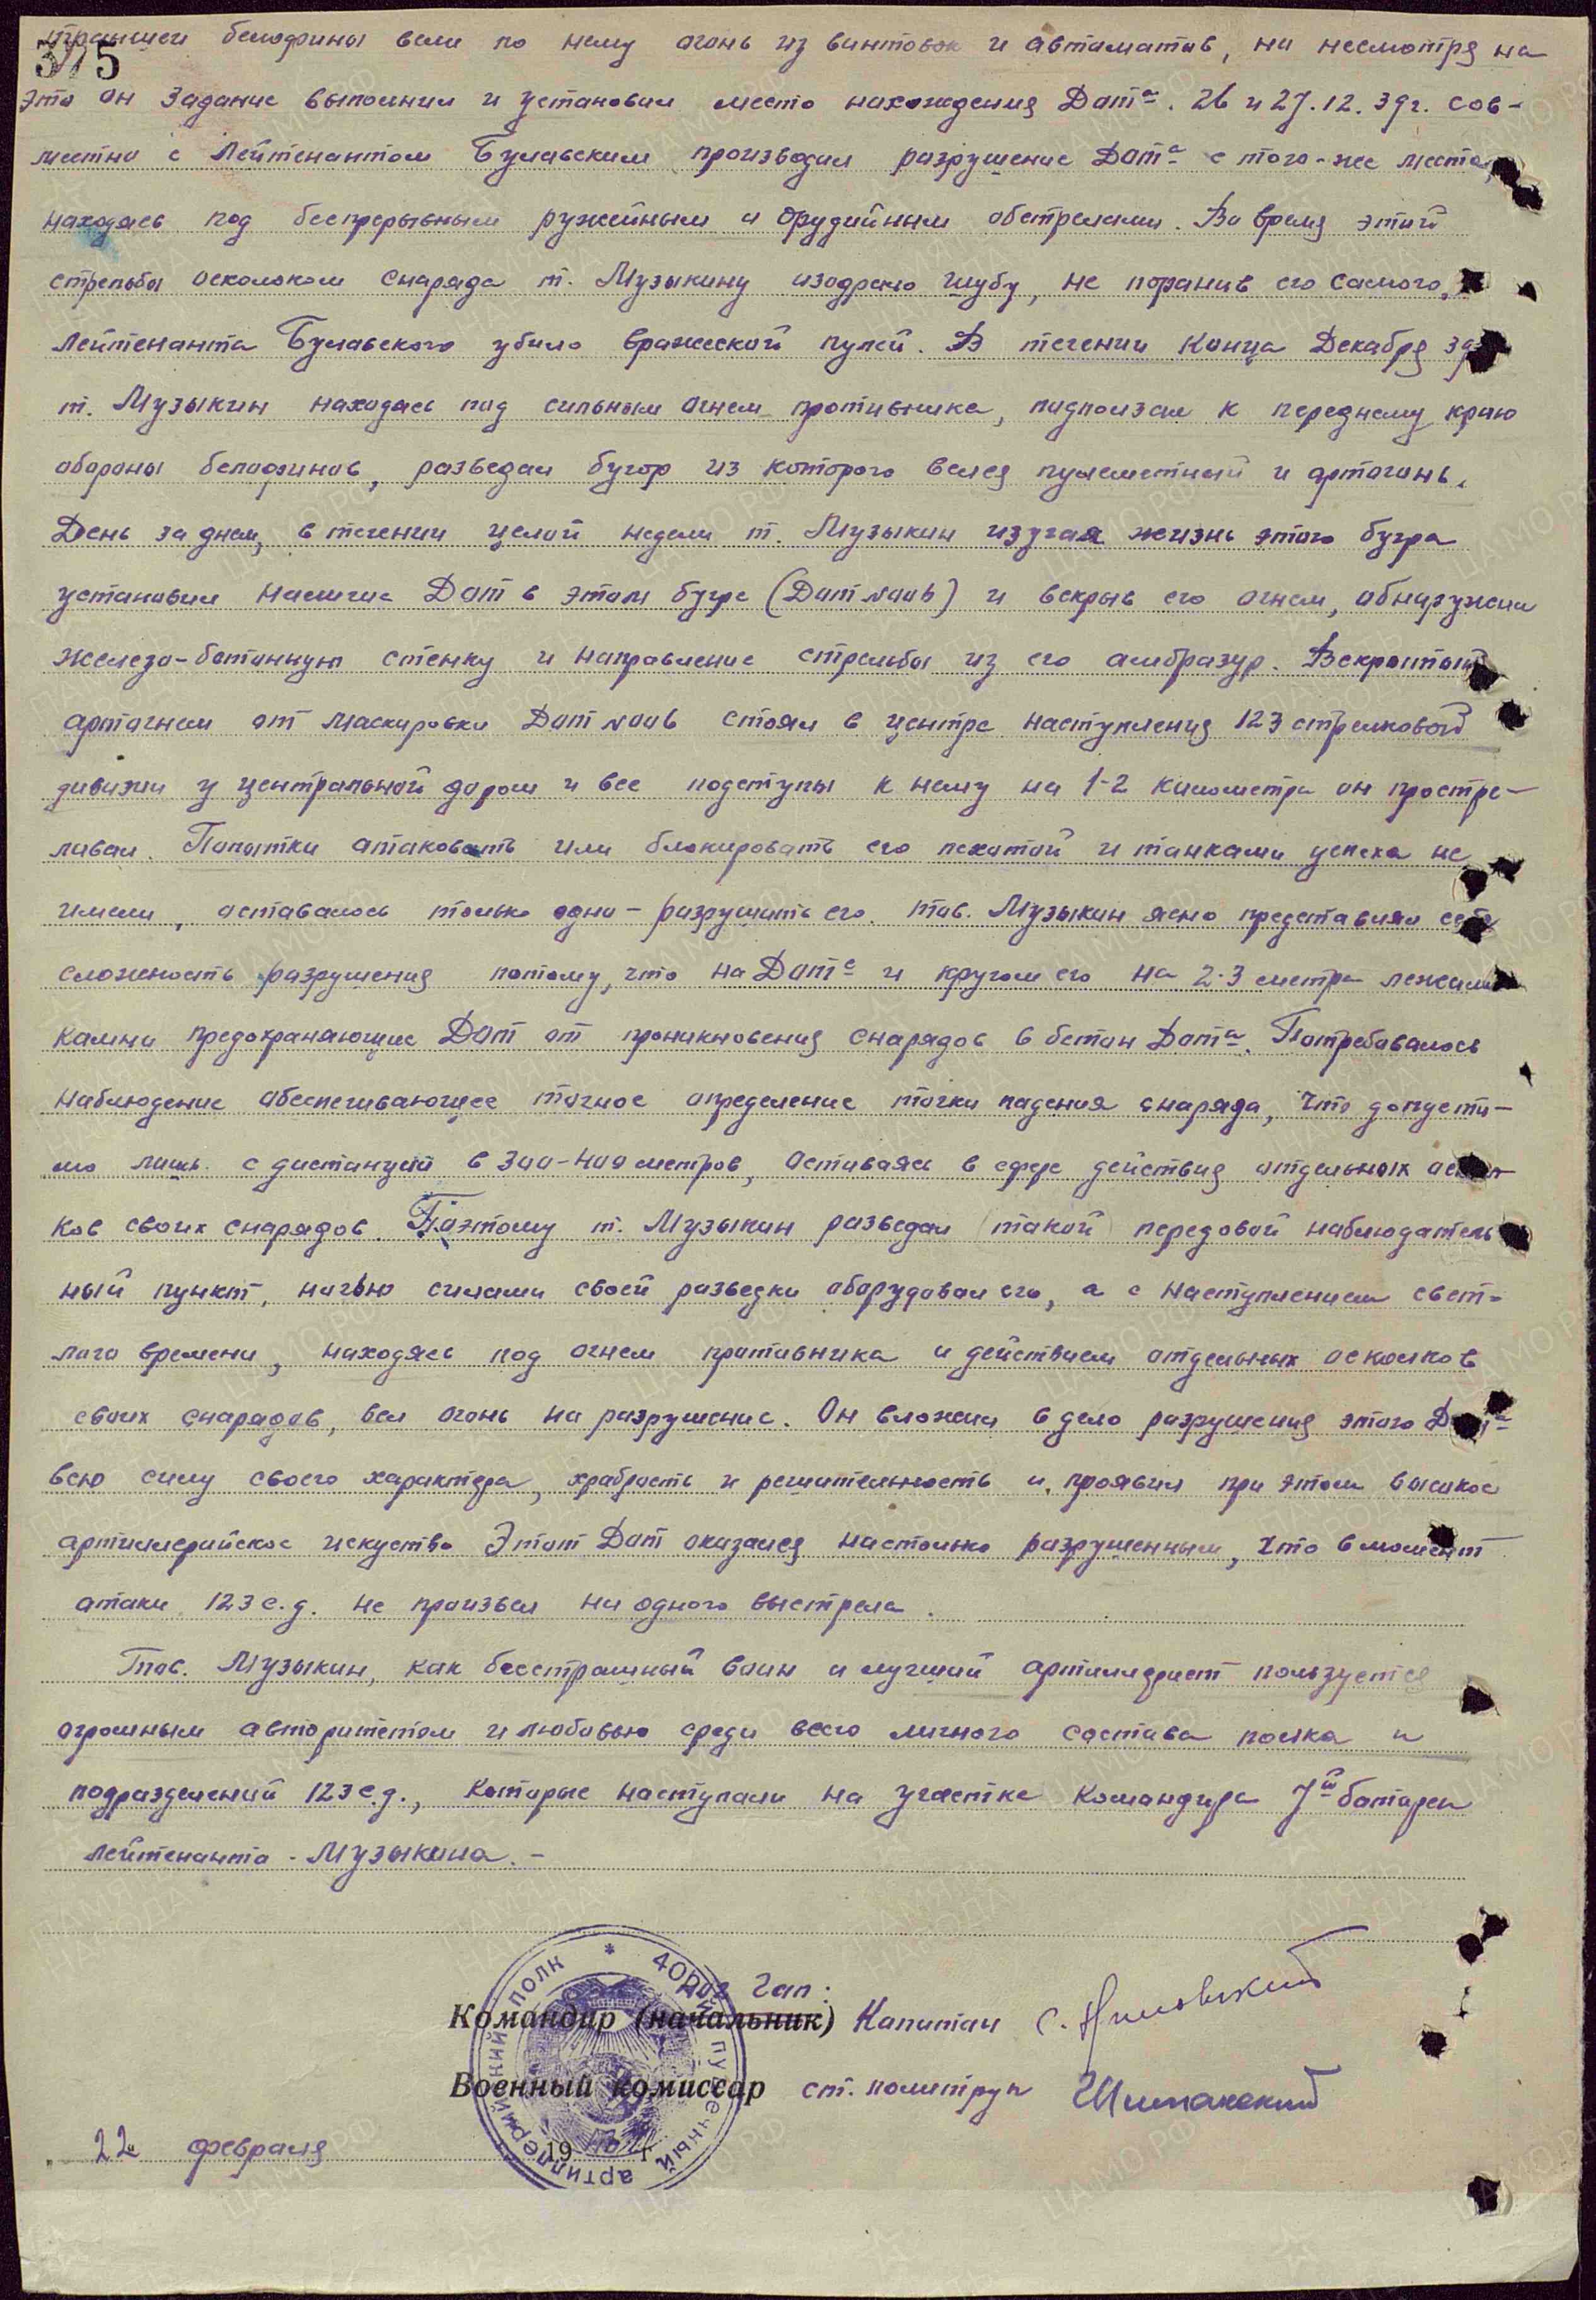 375
траншеи белофины вели по нему огонь из винтовок и автоматов, но несмотря на
это он задание выполнил и установил место нахождения Дот-а. 26 и 27.12.39г. сов-
местно с лейтенантом Булавским производил разрушение Дот-а с того-же места,
находясь под беспрерывным ружейным и орудийным обстрелами. Во время этой
стрельбы осколком снаряда т. Музыкину изодрало шубу, не поранив его самого,
лейтенанта Булавского убило вражеской пулей. В течении конца Декабря 39
т. Музыкин находясь под сильным огнем противника, подползал к переднему краю
обороны белофинов, разведал бугор из которого велся пулеметный и артогонь.
День за днем, в течении целой недели т. Музыкин изучая жизнь этого бугра
установил наличие Дот в этом бугре (Дот №006) и вскрыв его огнем, обнаружил
железо-бетонную стенку и направление стрельбы из его амбразур. Вскрытый
артогнем от маскировки Дот №006 стоял в центре наступления 123 стрелковой
дивизии у центральной дороги и все подступы к нему на 1-2 километра он простре-
ливал. Попытки атаковать или блокировать его пехотой и танками успеха не
имели, оставалось только одно - разрушить его. тов. Музыкин ясно представлял себе
сложность разрушения потому, что на Дот-е и кругом его на 2-3 метра лежали
камни предохраняющие Дот от проникновения снарядов в бетон Дот-а. Потребовалось
наблюдение обеспечивающее точное определение точки падения снаряда, что допусти-
мо лишь с дистанций в 300-400 метров, оставаясь в сфере действия отдельных оскол-
ков своих снарядов. Поэтому т. Музыкин разведал такой передовой наблюдатель
ный пункт, ночью силами своей разведки оборудовал его, а с наступлением свет-
лого времени, находясь под огнем противника и действием отдельных осколков
своих снарядов, вел огонь на разрушение. Он вложил в дело разрушения этого Дот-а
всю силу своего характера, храбрость и решительность и проявил при этом высокое
артиллерийское искуство Этот Дот оказался настолько разрушенным, что в момент
атаки 123 с.д. не произвел ни одного выстрела.
Тов. Музыкин, как бесстрашный воин и лучший артиллерист пользуется
огромным авторитетом и любовью среди всего личного состава полка и
подразделений 123 с.д., которые наступали на участке командира 7й батареи
лейтенанта - Музыкина. -
402 Гап:
Командир (начальник) Капитан
Военный комиссар ст. политрук Шимановский
22 февраля 1940 г.
артиллерийский полк * пушечный